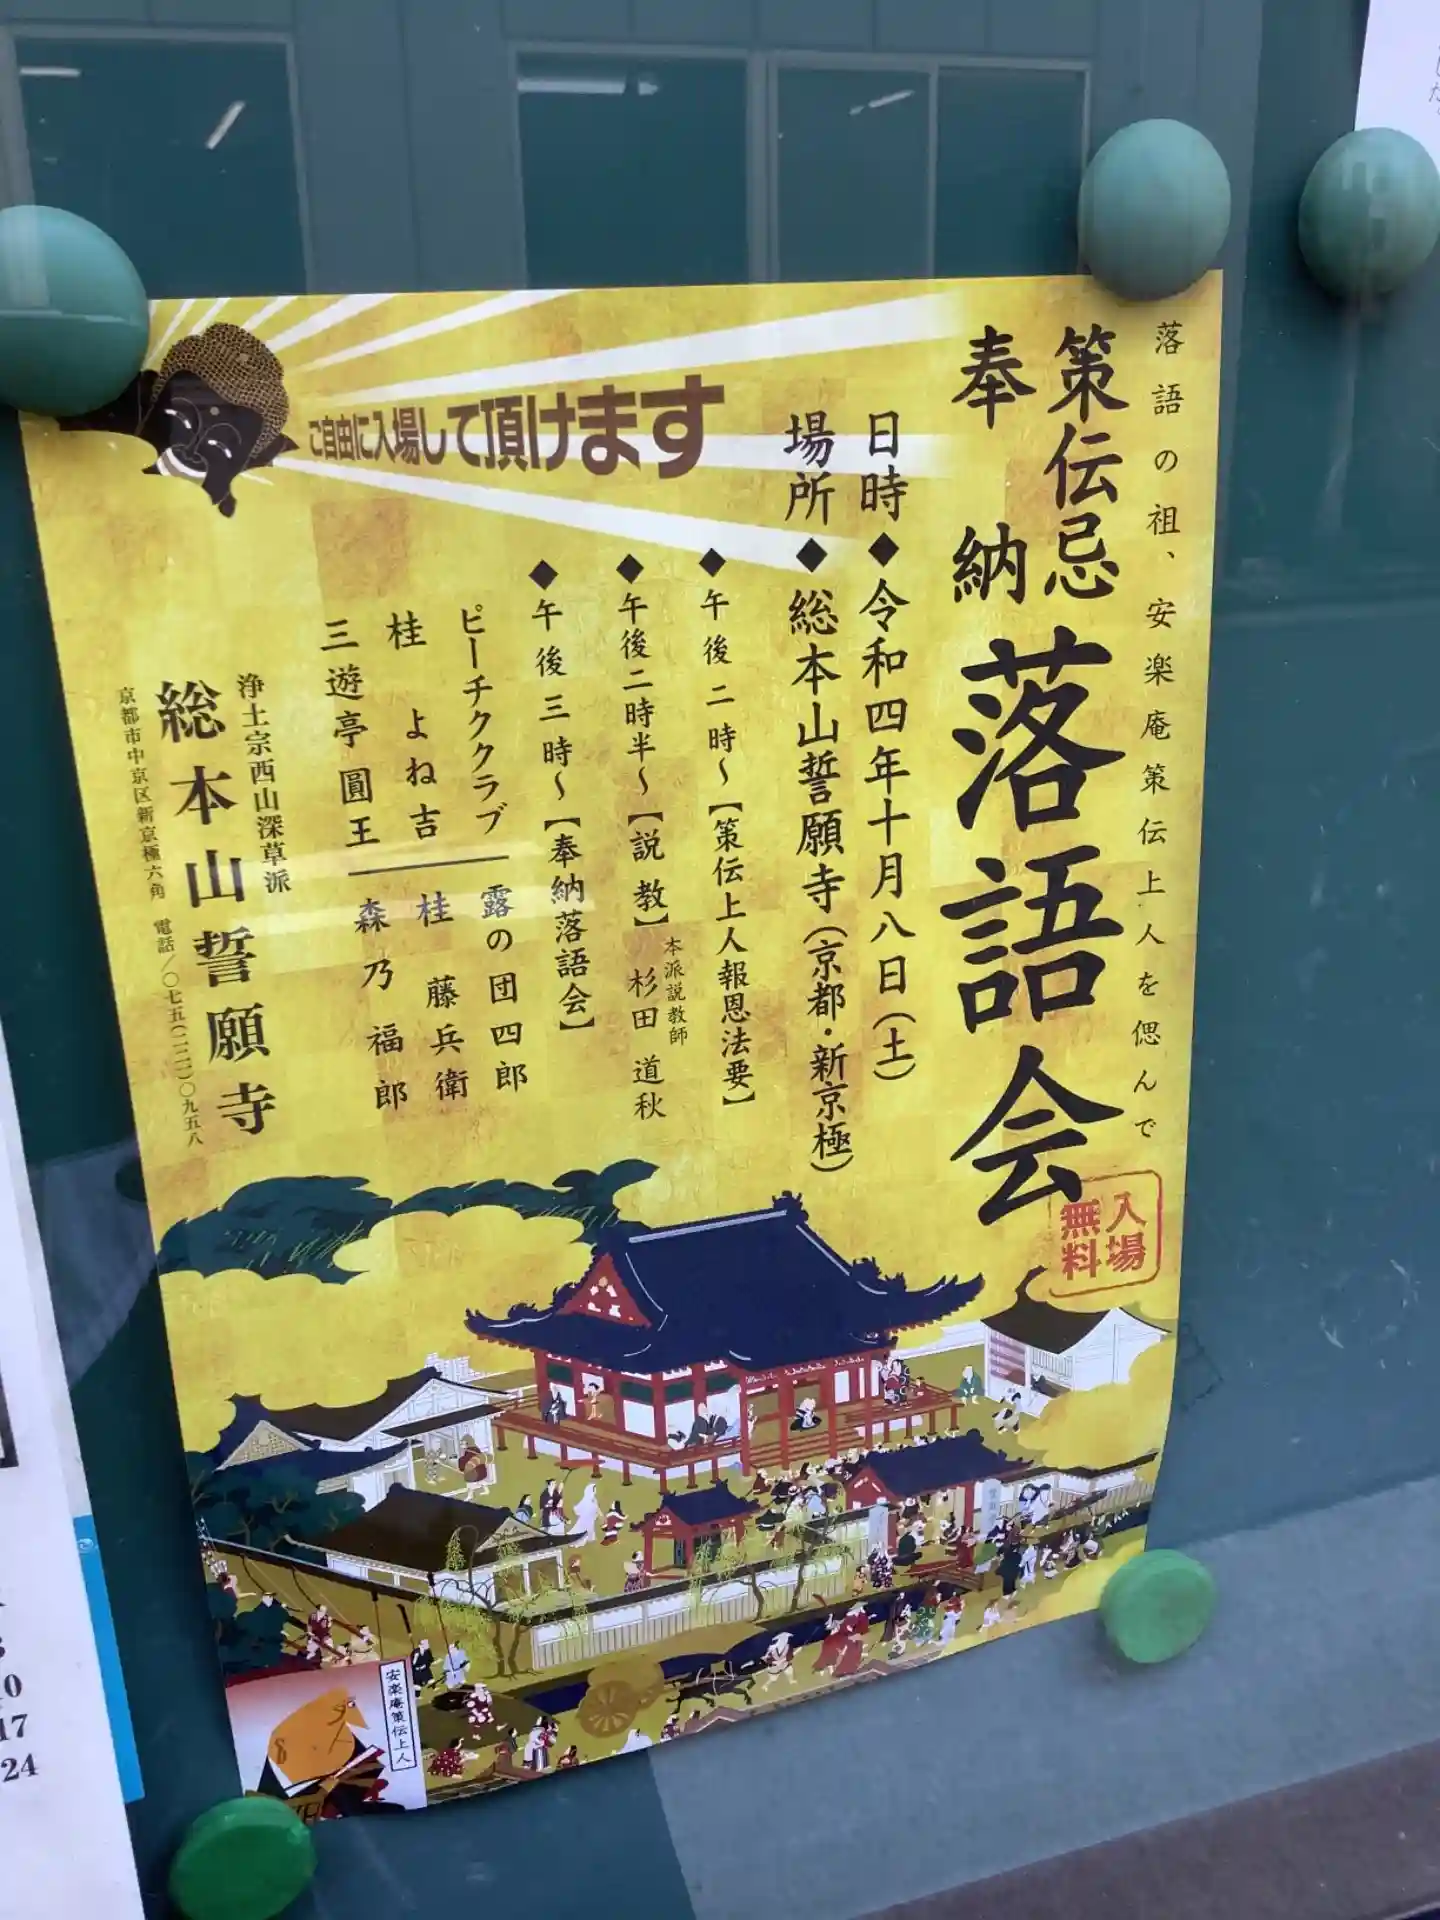 落語の祖、安楽庵策伝上人を偲んで
策伝忌
奉納
落語会
入場
無料
日時◆令和四年十月八日(土)
場所◆総本山誓願寺(京都・新京極)
◆午後二時〜【策伝上人報恩法要】
◆午後二時半〜【説教】
本派説教師
杉田道秋
◆午後三時〜【奉納落語会】
ピーチククラブ
桂よね吉
三遊亭圓王
露の団四郎
桂藤兵衛
森乃福郎
ご自由に入場して頂けます
浄土宗西山深草派
総本山誓願寺
京都市中京区新京極六角 電話/〇七五(二二一)〇九五八
安楽庵策伝上人
10
17
24